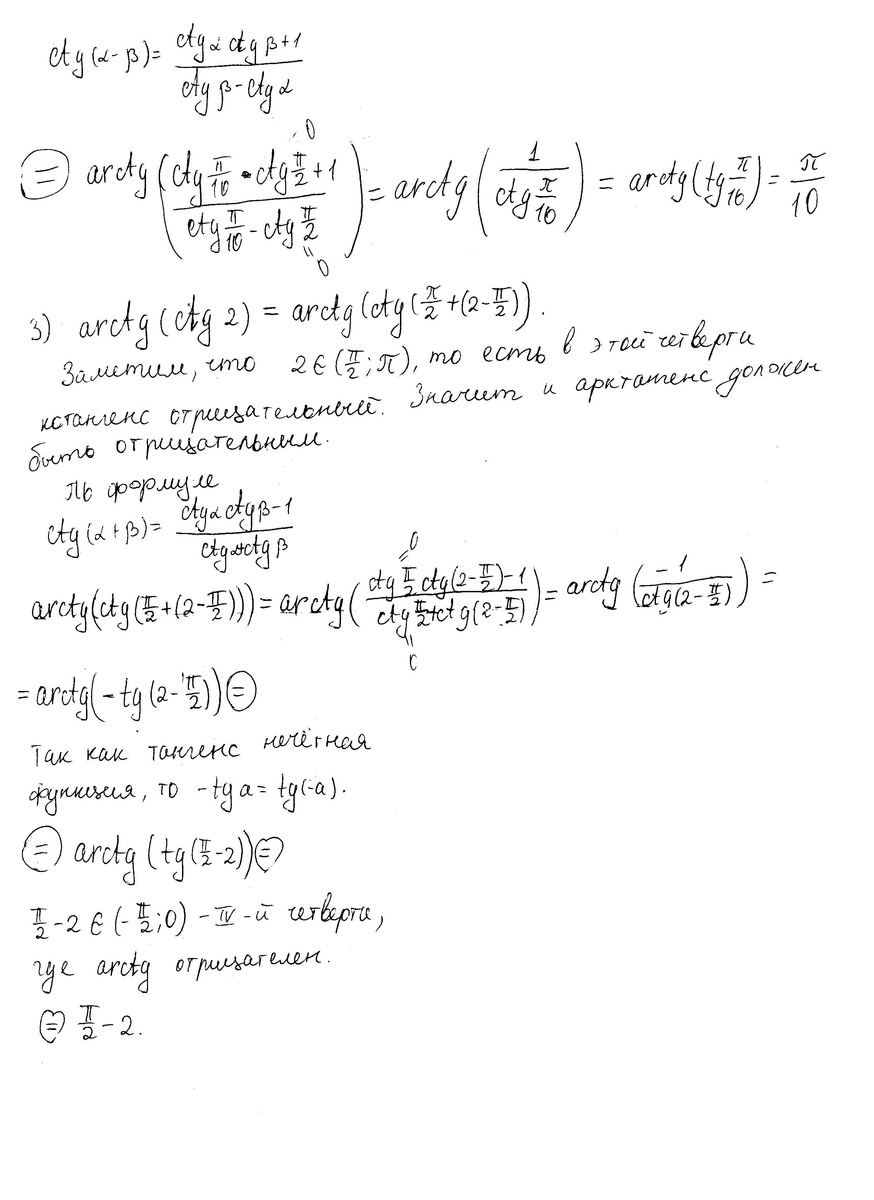 ctg(α-β)= (ctgα ctgβ+1)/(ctgβ-ctgα)
= arctg((ctg π/10 · ctg π/2 + 1)/(ctg π/10 - ctg π/2)) = arctg(1/(ctg π/10)) = arctg(tg π/10) = π/10
3) arctg(ctg 2) = arctg(ctg(π/2+(2-π/2)).
Заметим, что 2∈(π/2;π), то есть в этой четверти
котангенс отрицательный. Значит и арктангенс должен
быть отрицательным.
По формуле
ctg(α+β)= (ctgα ctgβ-1)/(ctgα+ctgβ)
arctg(ctg(π/2+(2-π/2))) = arctg((ctg π/2 ctg(2-π/2)-1)/(ctg π/2+ctg(2-π/2))) = arctg(-1/(ctg(2-π/2))) =
= arctg(-tg(2-π/2)) =
Так как тангенс нечётная
функция, то -tg a = tg(-a).
= arctg(tg(π/2-2)) =
π/2-2 ∈ (-π/2;0) - IV-й четверти,
где arctg отрицателен.
= π/2-2.